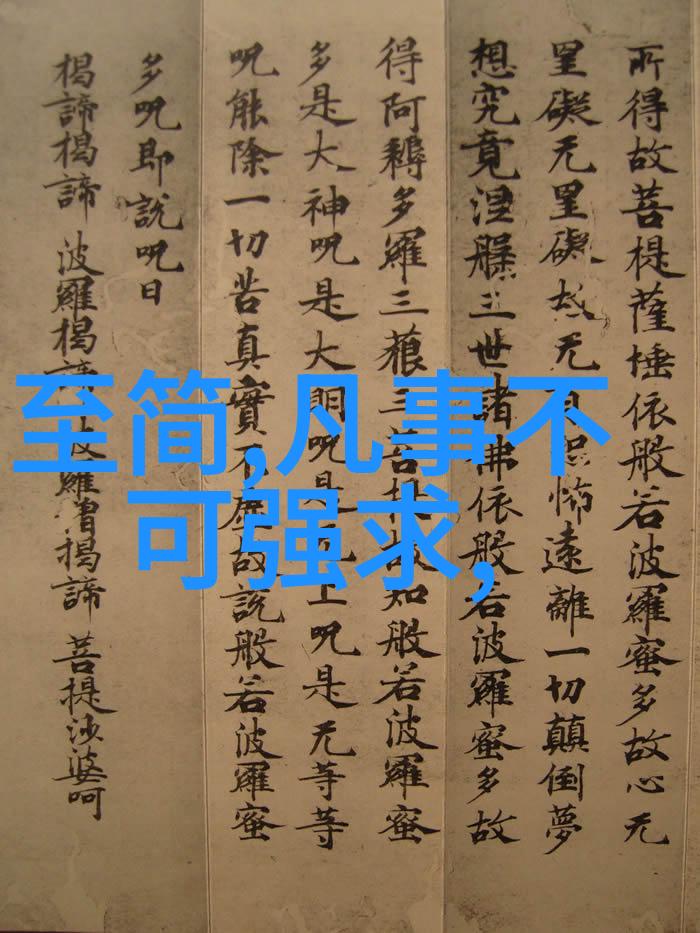 所得故菩提薩埵依般若波羅蜜多故心无
罣礙无罣礙故无有恐怖遠離一切顛倒夢
想究竟涅槃三世諸佛依般若波羅蜜多故
得阿耨多羅三藐三菩提故知般若波羅蜜
多是大神呪是大明呪是无上呪是无等等
呪能除一切苦真實不虛故說般若波羅蜜
多呪即說呪曰
揭諦揭諦 波羅揭諦 波羅僧揭諦 菩提沙婆呵
至简,凡事不
可强求,